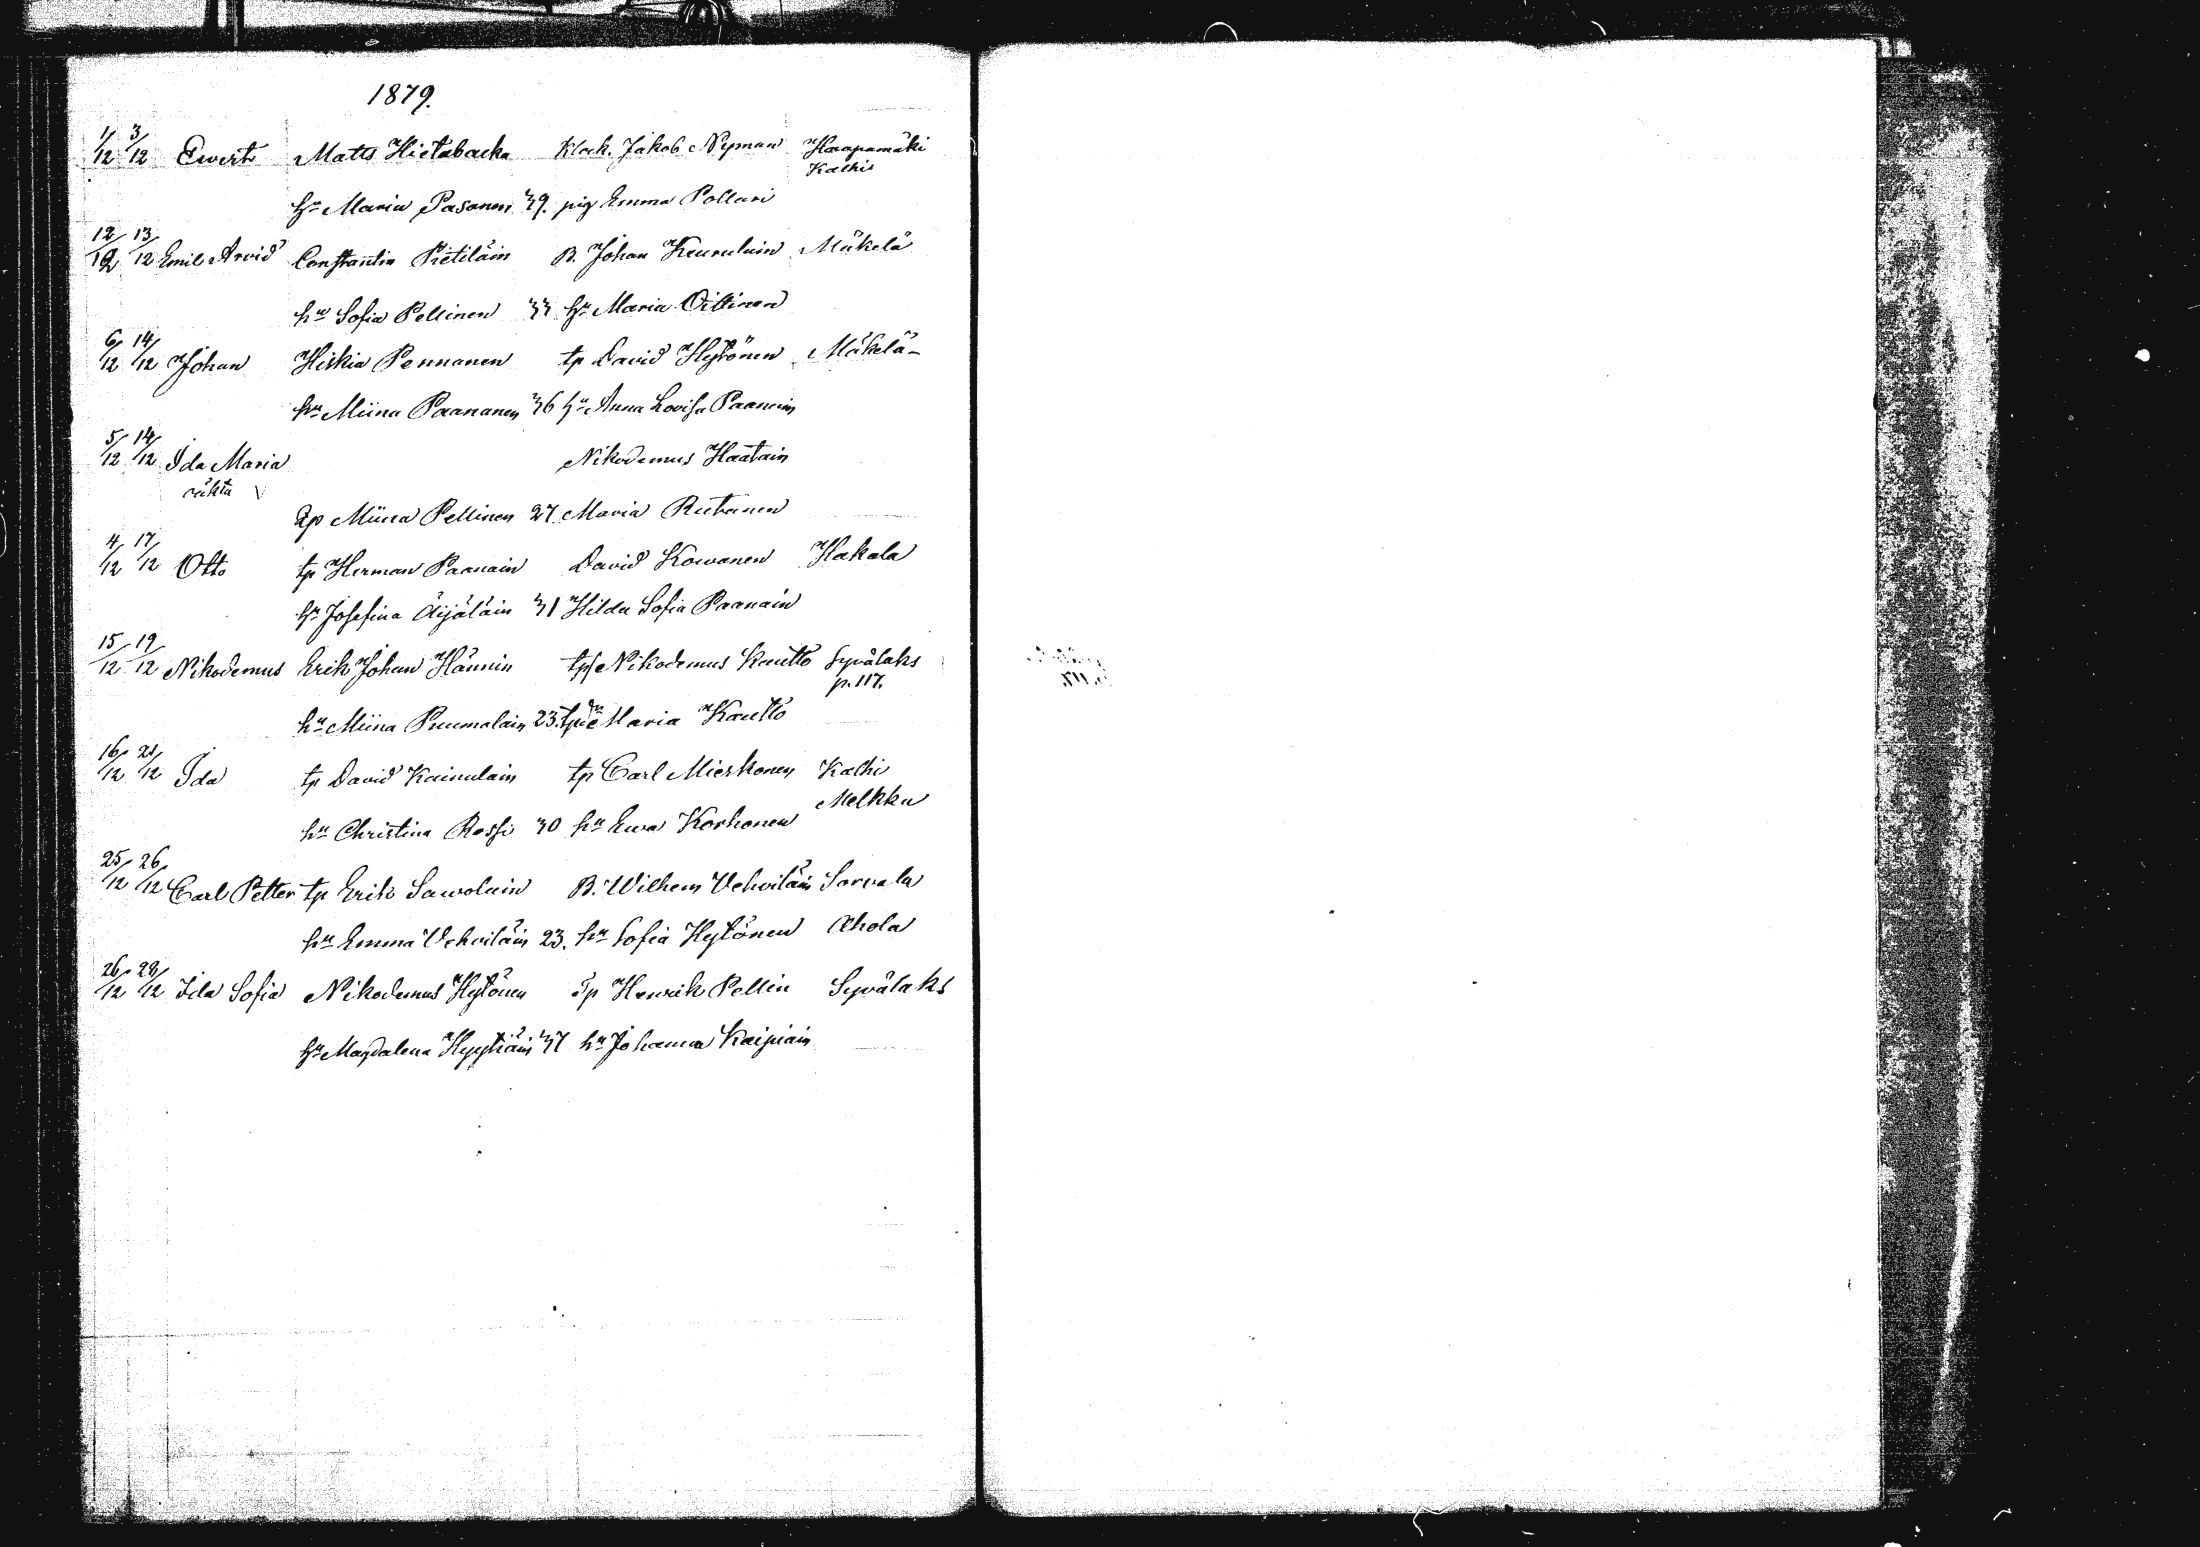 1879.
1/12 3/12 Ewert Matts Hietabacka Klock. Jakob Nyman Haapamäki
Kalhis
hu Maria Pasanen 39. pig Emma Pollari
12/12 13/12 Emil Arvid Constantin Pietiläin B. Johan Keurulain Mäkelä
hu Sofia Pellinen 33 hu Maria Oittinen
6/12 14/12 Johan Hiskia Pennanen tp David Hytönen Mäkelä-
hu Miina Paananen 36 hu Anna Lovisa Paanain
5/12 14/12 Ida Maria Nikodemus Haatain
oäkta
Miina Pellinen 27. Maria Rutanen
4/12 17/12 Otto tp Herman Paanain David Kowanen Hakala
hu Josefina Äijäläin 31 Hilda Sofia Paanain
15/12 19/12 Nikodemus Erik Johan Hännin Nikodemus Kautto Syvälaks
p. 117.
hu Miina Puumalain 23. Maria Kautto
16/12 21/12 Ida tp David Kainulain tp Carl Mieskonen Kalhi
Melkku
hu Christina Rossi 30 hu Ewa Korhonen
25/12 26/12 Carl Petter tp Erik Sawolain B. Wilhem Vehviläin Sarvala
hu Emma Vehviläin 23. hu Sofia Hytönen Ahola
26/12 28/12 Ida Sofia Nikodemus Hytönen Tp Henrik Pellin Syvälaks
hu Magdalena Hyytiäin 37 hu Johanna Kaipiain